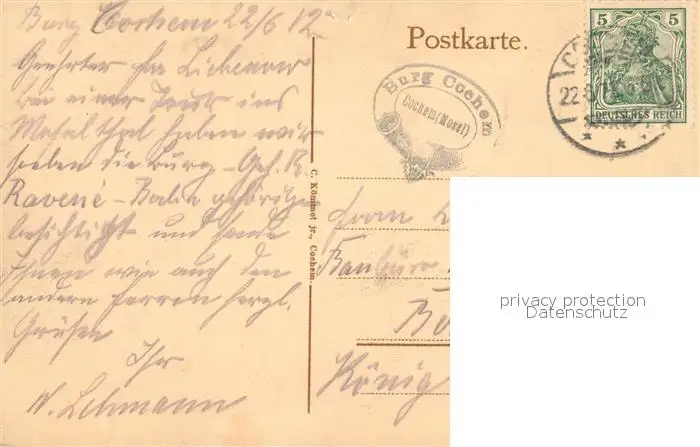 Burg Cochem 22/6 12
Geehrter Herr
bei einer Tour ins
Moselthal haben wir
soeben die Burg - Geh. R.
Ravené - Berlin gehörige
besichtigt und sende
Ihnen wie auch den
andern Herren herzl.
Grüße
Ihr
W. Lehmann
C. Könnet jr., Cochem.
Postkarte.
Burg Cochem
Cochem (Mosel)
5 5
DEUTSCHES REICH
22.6
Bo
König
privacy protection
Datenschutz